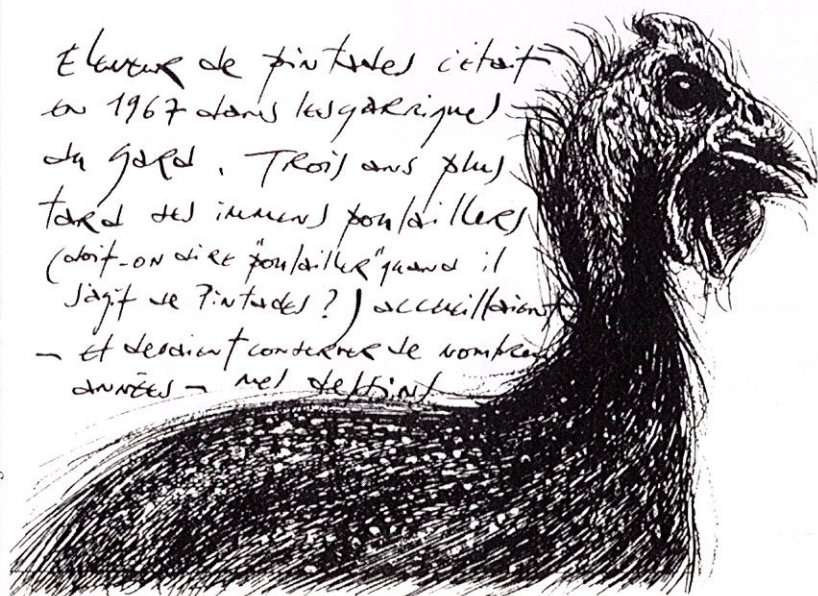 Eleveur de pintades c'était
en 1967 dans les garrigues
du Gard. Trois ans plus
tard des immenses poulaillers
(doit-on dire "poulailler" quand il
s'agit de Pintades ?) accueillaient
— et devaient conserver de nombreuses
années — mes dessins